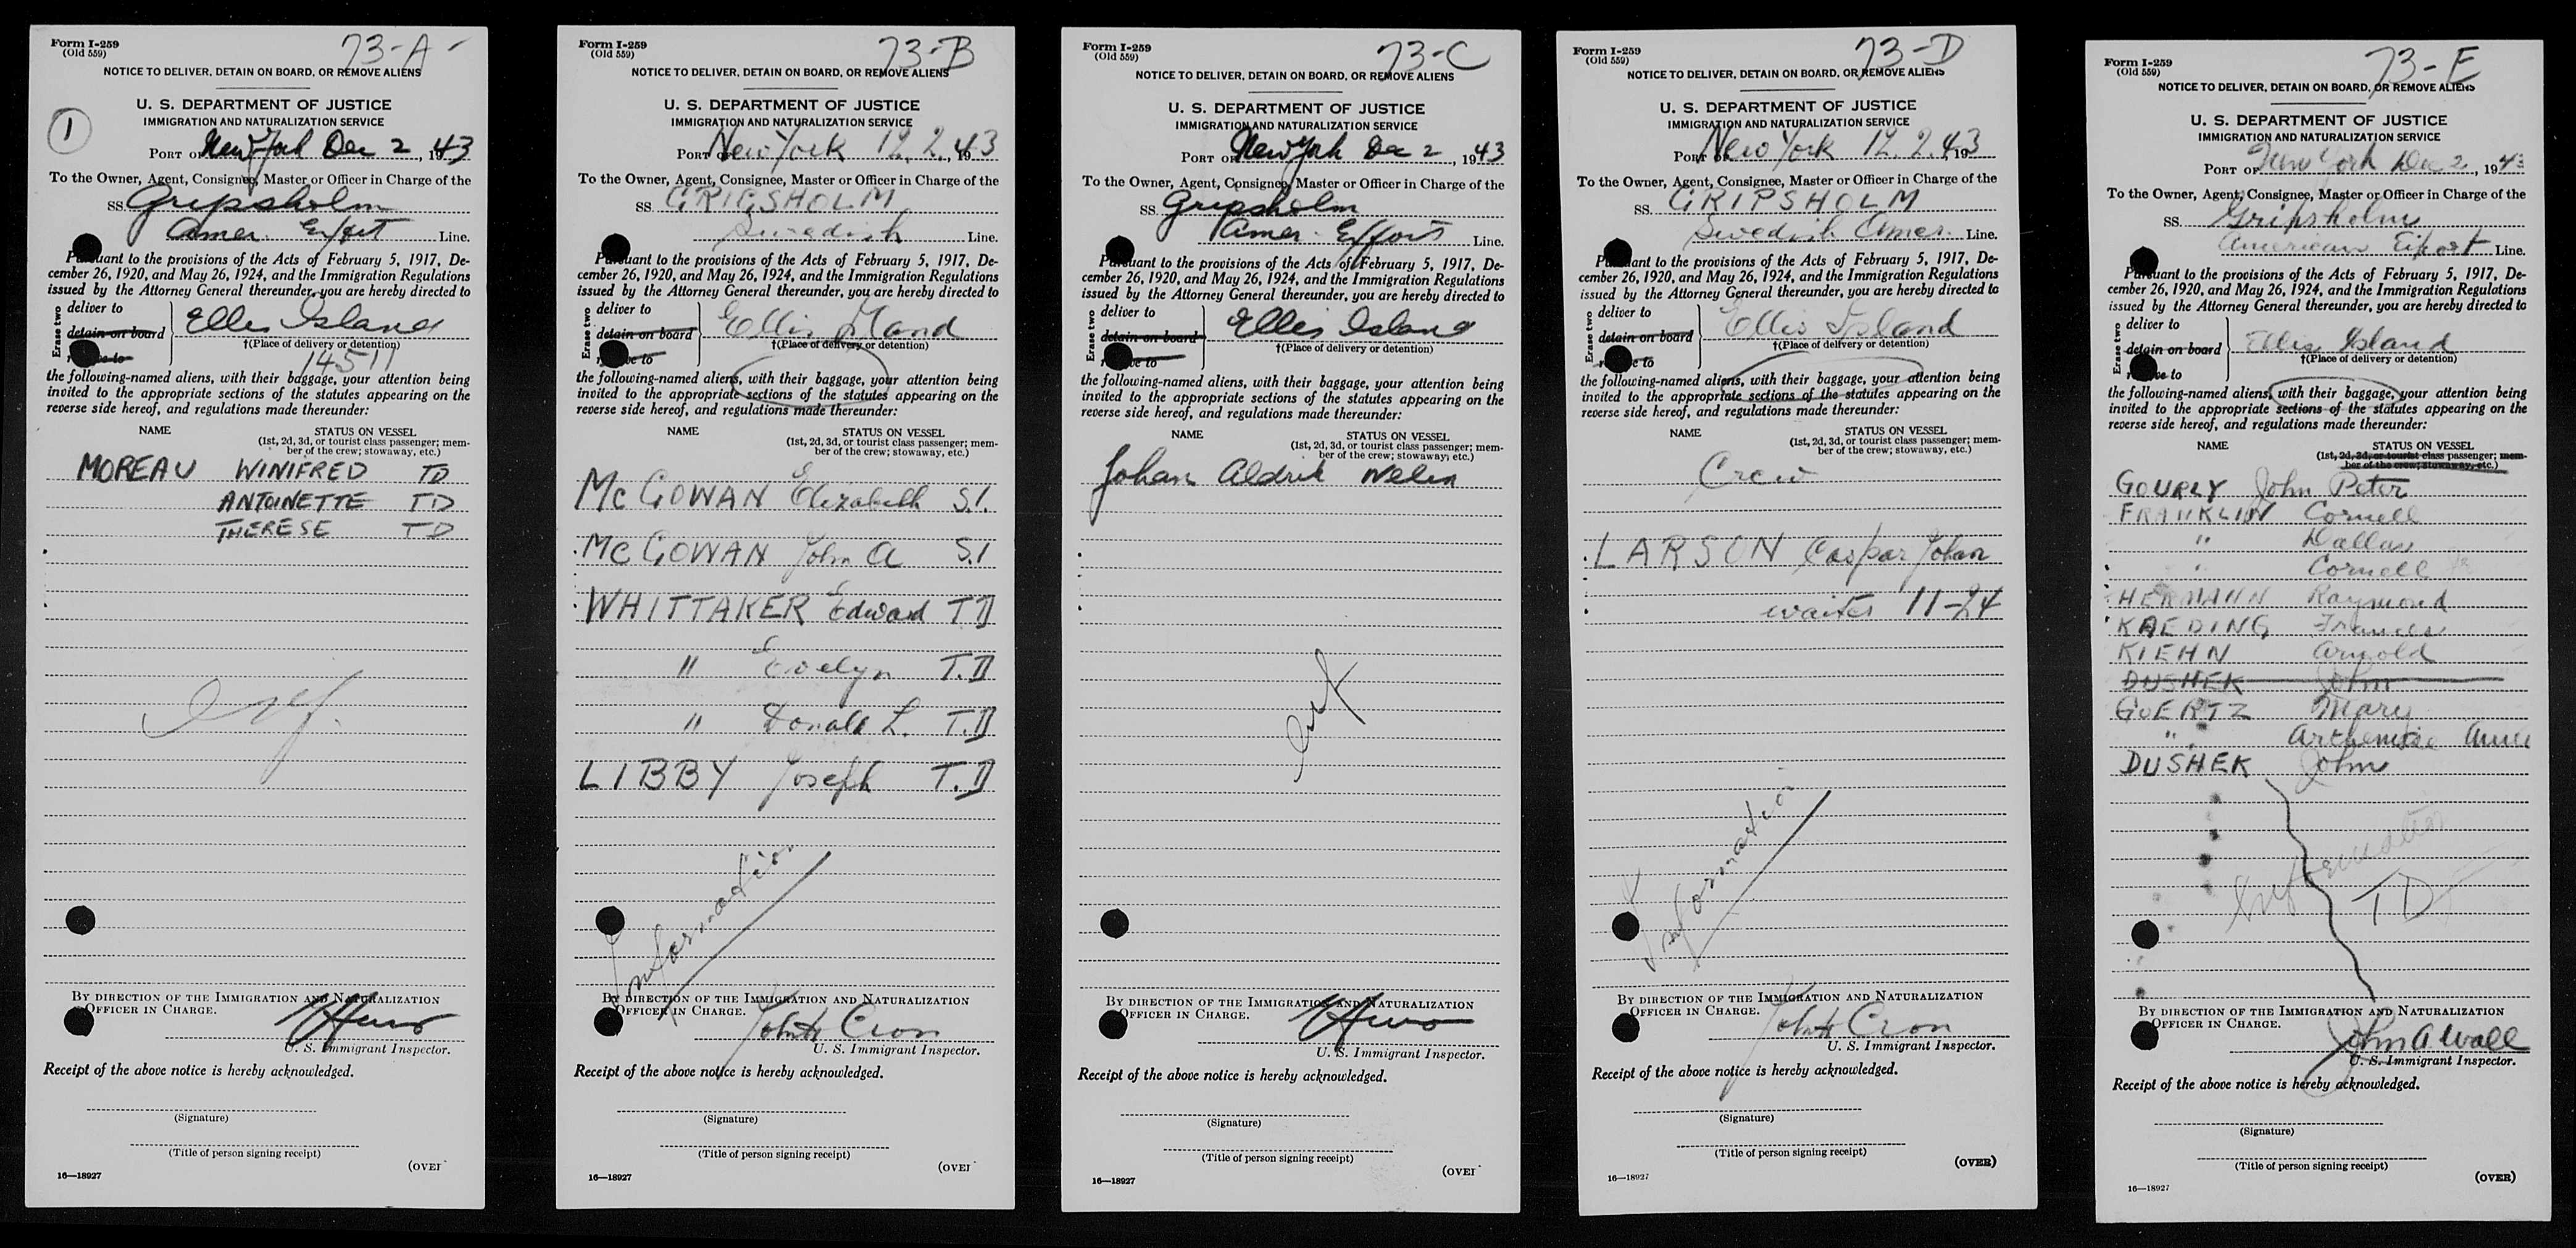 Form I-259
(Old 559)
73-A
NOTICE TO DELIVER, DETAIN ON BOARD, OR REMOVE ALIENS
U. S. DEPARTMENT OF JUSTICE
IMMIGRATION AND NATURALIZATION SERVICE
1
PORT OF New York Dec 2, 1943
To the Owner, Agent, Consignee, Master or Officer in Charge of the
SS. Gripsholm
Amer. Export Line.
Pursuant to the provisions of the Acts of February 5, 1917, De-
cember 26, 1920, and May 26, 1924, and the Immigration Regulations
issued by the Attorney General thereunder, you are hereby directed to
Erase two
deliver to
detain on board
Ellis Island
†(Place of delivery or detention)
14511
the following-named aliens, with their baggage, your attention being
invited to the appropriate sections of the statutes appearing on the
reverse side hereof, and regulations made thereunder:
NAME STATUS ON VESSEL
(1st, 2d, 3d, or tourist class passenger; mem-
ber of the crew; stowaway, etc.)
MOREAU WINIFRED TD
ANTOINETTE TD
THERESE TD
BY DIRECTION OF THE IMMIGRATION AND NATURALIZATION
OFFICER IN CHARGE.
U. S. Immigrant Inspector.
Receipt of the above notice is hereby acknowledged.
(Signature)
(Title of person signing receipt)
16—18927
(OVER
Form I-259
(Old 559)
73-B
NOTICE TO DELIVER, DETAIN ON BOARD, OR REMOVE ALIENS
U. S. DEPARTMENT OF JUSTICE
IMMIGRATION AND NATURALIZATION SERVICE
PORT OF New York 12.2., 1943
To the Owner, Agent, Consignee, Master or Officer in Charge of the
SS. GRIGSHOLM
Swedish Line.
Pursuant to the provisions of the Acts of February 5, 1917, De-
cember 26, 1920, and May 26, 1924, and the Immigration Regulations
issued by the Attorney General thereunder, you are hereby directed to
Erase two
deliver to
detain on board
Ellis Island
†(Place of delivery or detention)
the following-named aliens, with their baggage, your attention being
invited to the appropriate sections of the statutes appearing on the
reverse side hereof, and regulations made thereunder:
NAME STATUS ON VESSEL
(1st, 2d, 3d, or tourist class passenger; mem-
ber of the crew; stowaway, etc.)
McGOWAN Elizabeth S.I.
McGOWAN John A S.I
WHITTAKER Edward T D
" Evelyn T.D
" Donald L. T.D
LIBBY Joseph T.D
Information
BY DIRECTION OF THE IMMIGRATION AND NATURALIZATION
OFFICER IN CHARGE.
John H Cron
U. S. Immigrant Inspector.
Receipt of the above notice is hereby acknowledged.
(Signature)
(Title of person signing receipt)
16—18927
(OVER
Form I-259
(Old 559)
73-C
NOTICE TO DELIVER, DETAIN ON BOARD, OR REMOVE ALIENS
U. S. DEPARTMENT OF JUSTICE
IMMIGRATION AND NATURALIZATION SERVICE
PORT OF New York Dec 2, 1943
To the Owner, Agent, Consignee, Master or Officer in Charge of the
SS. Gripsholm
Amer. Export Line.
Pursuant to the provisions of the Acts of February 5, 1917, De-
cember 26, 1920, and May 26, 1924, and the Immigration Regulations
issued by the Attorney General thereunder, you are hereby directed to
Erase two
deliver to
detain on board
Ellis Island
†(Place of delivery or detention)
the following-named aliens, with their baggage, your attention being
invited to the appropriate sections of the statutes appearing on the
reverse side hereof, and regulations made thereunder:
NAME STATUS ON VESSEL
(1st, 2d, 3d, or tourist class passenger; mem-
ber of the crew; stowaway, etc.)
Johan Aldrik Nelin
BY DIRECTION OF THE IMMIGRATION AND NATURALIZATION
OFFICER IN CHARGE.
U. S. Immigrant Inspector.
Receipt of the above notice is hereby acknowledged.
(Signature)
(Title of person signing receipt)
16—18927
(OVER
Form I-259
(Old 559)
73-D
NOTICE TO DELIVER, DETAIN ON BOARD, OR REMOVE ALIENS
U. S. DEPARTMENT OF JUSTICE
IMMIGRATION AND NATURALIZATION SERVICE
PORT OF New York 12.2.43
To the Owner, Agent, Consignee, Master or Officer in Charge of the
SS. GRIPSHOLM
Swedish Amer. Line.
Pursuant to the provisions of the Acts of February 5, 1917, De-
cember 26, 1920, and May 26, 1924, and the Immigration Regulations
issued by the Attorney General thereunder, you are hereby directed to
Erase two
deliver to
detain on board
Ellis Island
†(Place of delivery or detention)
the following-named aliens, with their baggage, your attention being
invited to the appropriate sections of the statutes appearing on the
reverse side hereof, and regulations made thereunder:
NAME STATUS ON VESSEL
(1st, 2d, 3d, or tourist class passenger; mem-
ber of the crew; stowaway, etc.)
Crew
LARSON Caspar Johan
waiter 11-24
Information
BY DIRECTION OF THE IMMIGRATION AND NATURALIZATION
OFFICER IN CHARGE.
John H Cron
U. S. Immigrant Inspector.
Receipt of the above notice is hereby acknowledged.
(Signature)
(Title of person signing receipt)
16—18927
(OVER)
Form I-259
(Old 559)
73-E
NOTICE TO DELIVER, DETAIN ON BOARD, OR REMOVE ALIENS
U. S. DEPARTMENT OF JUSTICE
IMMIGRATION AND NATURALIZATION SERVICE
PORT OF New York Dec 2, 1943
To the Owner, Agent, Consignee, Master or Officer in Charge of the
SS. Gripsholm
American Export Line.
Pursuant to the provisions of the Acts of February 5, 1917, De-
cember 26, 1920, and May 26, 1924, and the Immigration Regulations
issued by the Attorney General thereunder, you are hereby directed to
Erase two
deliver to
detain on board
Ellis Island
†(Place of delivery or detention)
the following-named aliens, with their baggage, your attention being
invited to the appropriate sections of the statutes appearing on the
reverse side hereof, and regulations made thereunder:
NAME STATUS ON VESSEL
(1st, 2d, 3d, or tourist class passenger; mem-
ber of the crew; stowaway, etc.)
GOURLY John Peter
FRANKLIN Cornell
" Dallas
" Cornell Jr
HERMANN Raymond
KAEDING Frances
KIEHN Arnold
DUSHEK John
GOERTZ Mary
" Arthemise Anne
DUSHEK John
Information
TD
BY DIRECTION OF THE IMMIGRATION AND NATURALIZATION
OFFICER IN CHARGE.
John A Wall
U. S. Immigrant Inspector.
Receipt of the above notice is hereby acknowledged.
(Signature)
(Title of person signing receipt)
16—18927
(OVER)